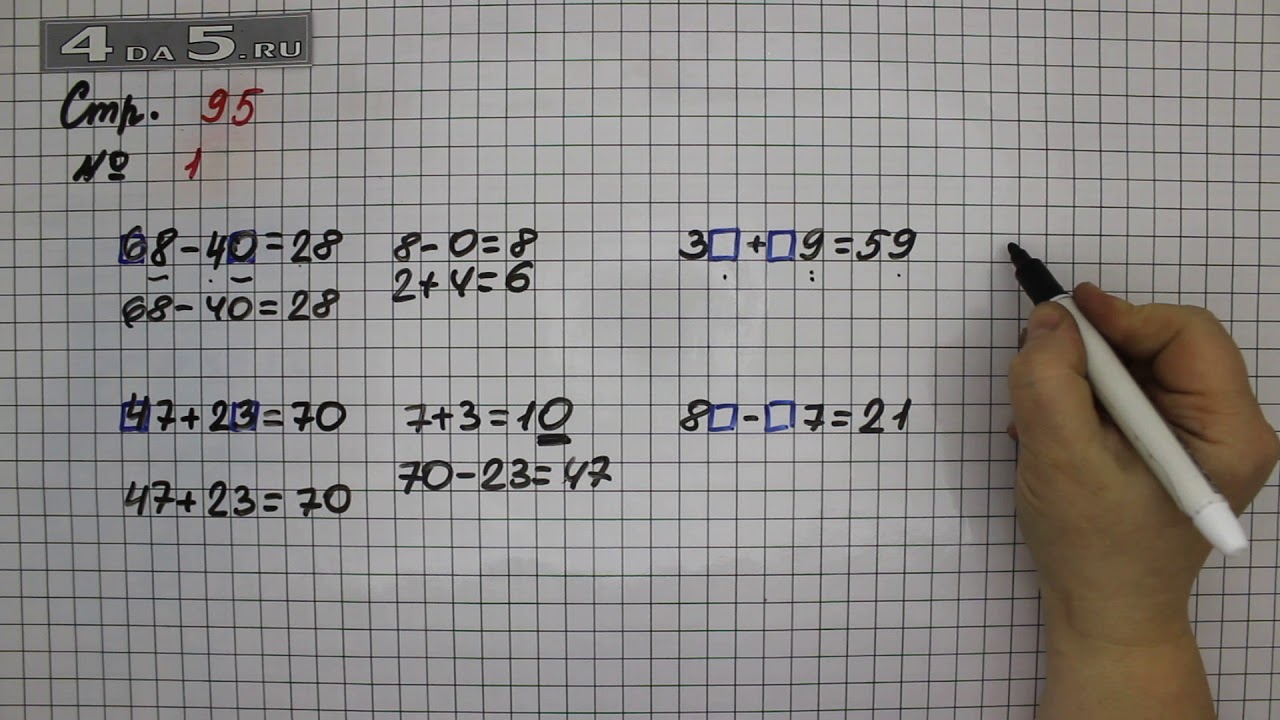 4 DA 5.RU
Стр. 95
№ 1
68-40=28
8-0=8
2+4=6
68-40=28
3□+□9=59
47+23=70
7+3=10
70-23=47
47+23=70
8□-□7=21